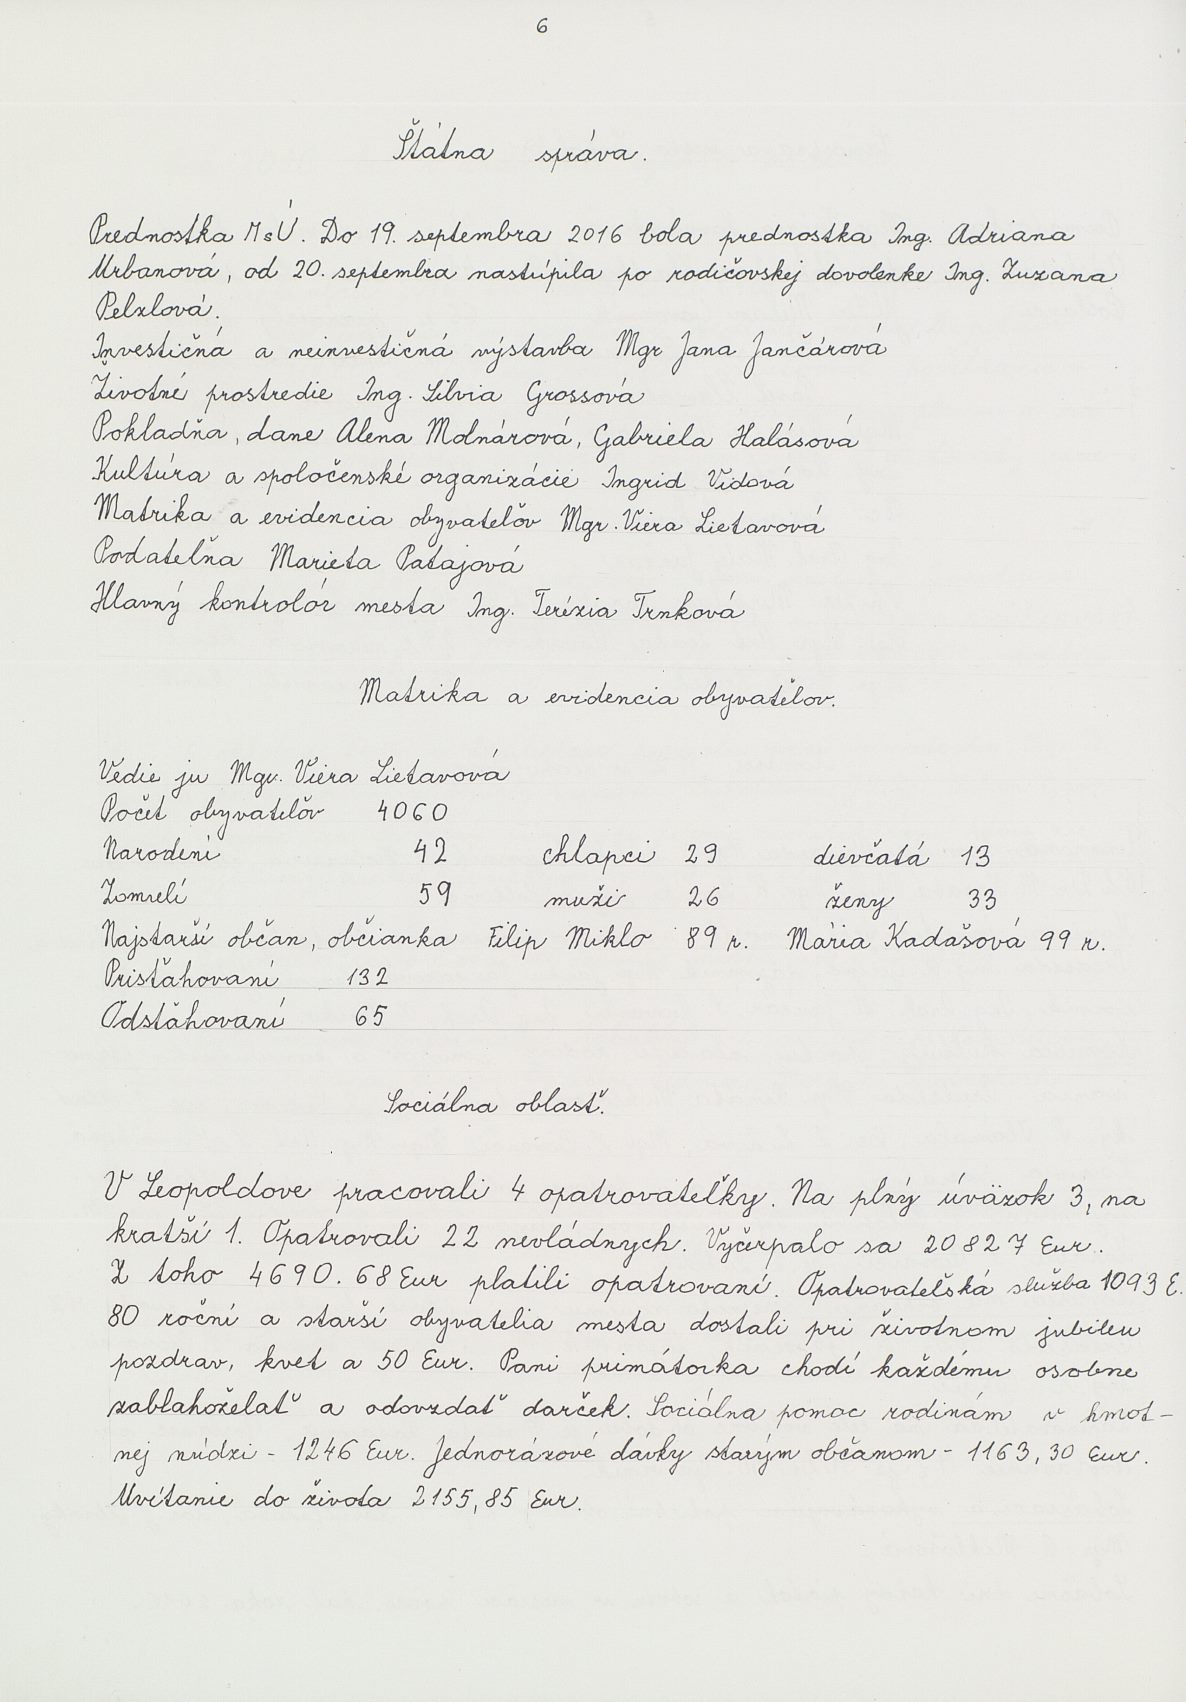 6
Štátna správa.
Prednostka MsÚ. Do 19. septembra 2016 bola prednostka Ing. Adriana
Urbanová, od 20. septembra nastúpila po rodičovskej dovolenke Ing. Zuzana
Pelzlová.
Investičná a neinvestičná výstavba Mgr Jana Jančárová
Životné prostredie Ing. Silvia Grossová
Pokladňa, dane Alena Molnárová, Gabriela Halásová
Kultúra a spoločenské organizácie Ingrid Vidová
Matrika a evidencia obyvateľov Mgr. Viera Lietavová
Podateľňa Marieta Patajová
Hlavný kontrolór mesta Ing. Terézia Trnková
Matrika a evidencia obyvateľov.
Vedie ju Mgr. Viera Lietavová
Počet obyvateľov 4060
Narodení 42 chlapci 29 dievčatá 13
Zomrelí 59 muži 26 ženy 33
Najstarší občan, občianka Filip Miklo 89 r. Mária Kadašová 99 r.
Prisťahovaní 132
Odsťahovaní 65
Sociálna oblasť.
V Leopoldove pracovali 4 opatrovateľky. Na plný úväzok 3, na
kratší 1. Opatrovali 22 nevládnych. Vyčerpalo sa 20827 Eur.
Z toho 4690.68 Eur platili opatrovaní. Opatrovateľská služba 1093 E.
80 roční a starší obyvatelia mesta dostali pri životnom jubileu
pozdrav, kvet a 50 Eur. Pani primátorka chodí každému osobne
zablahoželať a odovzdať darček. Sociálna pomoc rodinám v hmot-
nej núdzi - 1246 Eur. Jednorázové dávky starým občanom - 1163,30 Eur.
Uvítanie do života 2155,85 Eur.